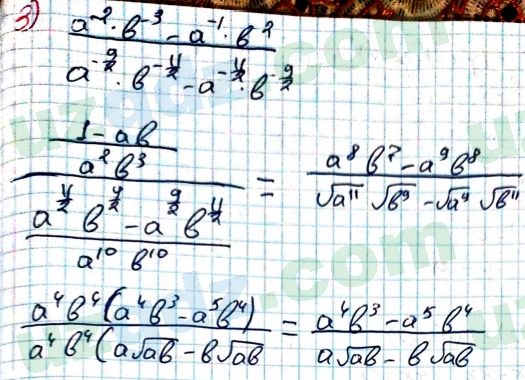 3)
a^{-2} · b^{-3} - a^{-1} · b^{-2}
a^{-9/2} · b^{-11/2} - a^{-11/2} · b^{-9/2}
1 - ab
a² b³
a^{11/2} b^{9/2} - a^{9/2} b^{11/2}
a^{10} b^{10}
= a⁸ b⁷ - a⁹ b⁸
√a¹¹ √b⁹ - √a⁹ √b¹¹
a⁴ b⁴ (a⁴ b³ - a⁵ b⁴) = a⁴ b³ - a⁵ b⁴
a⁴ b⁴ (a√ab - b√ab a√ab - b√ab